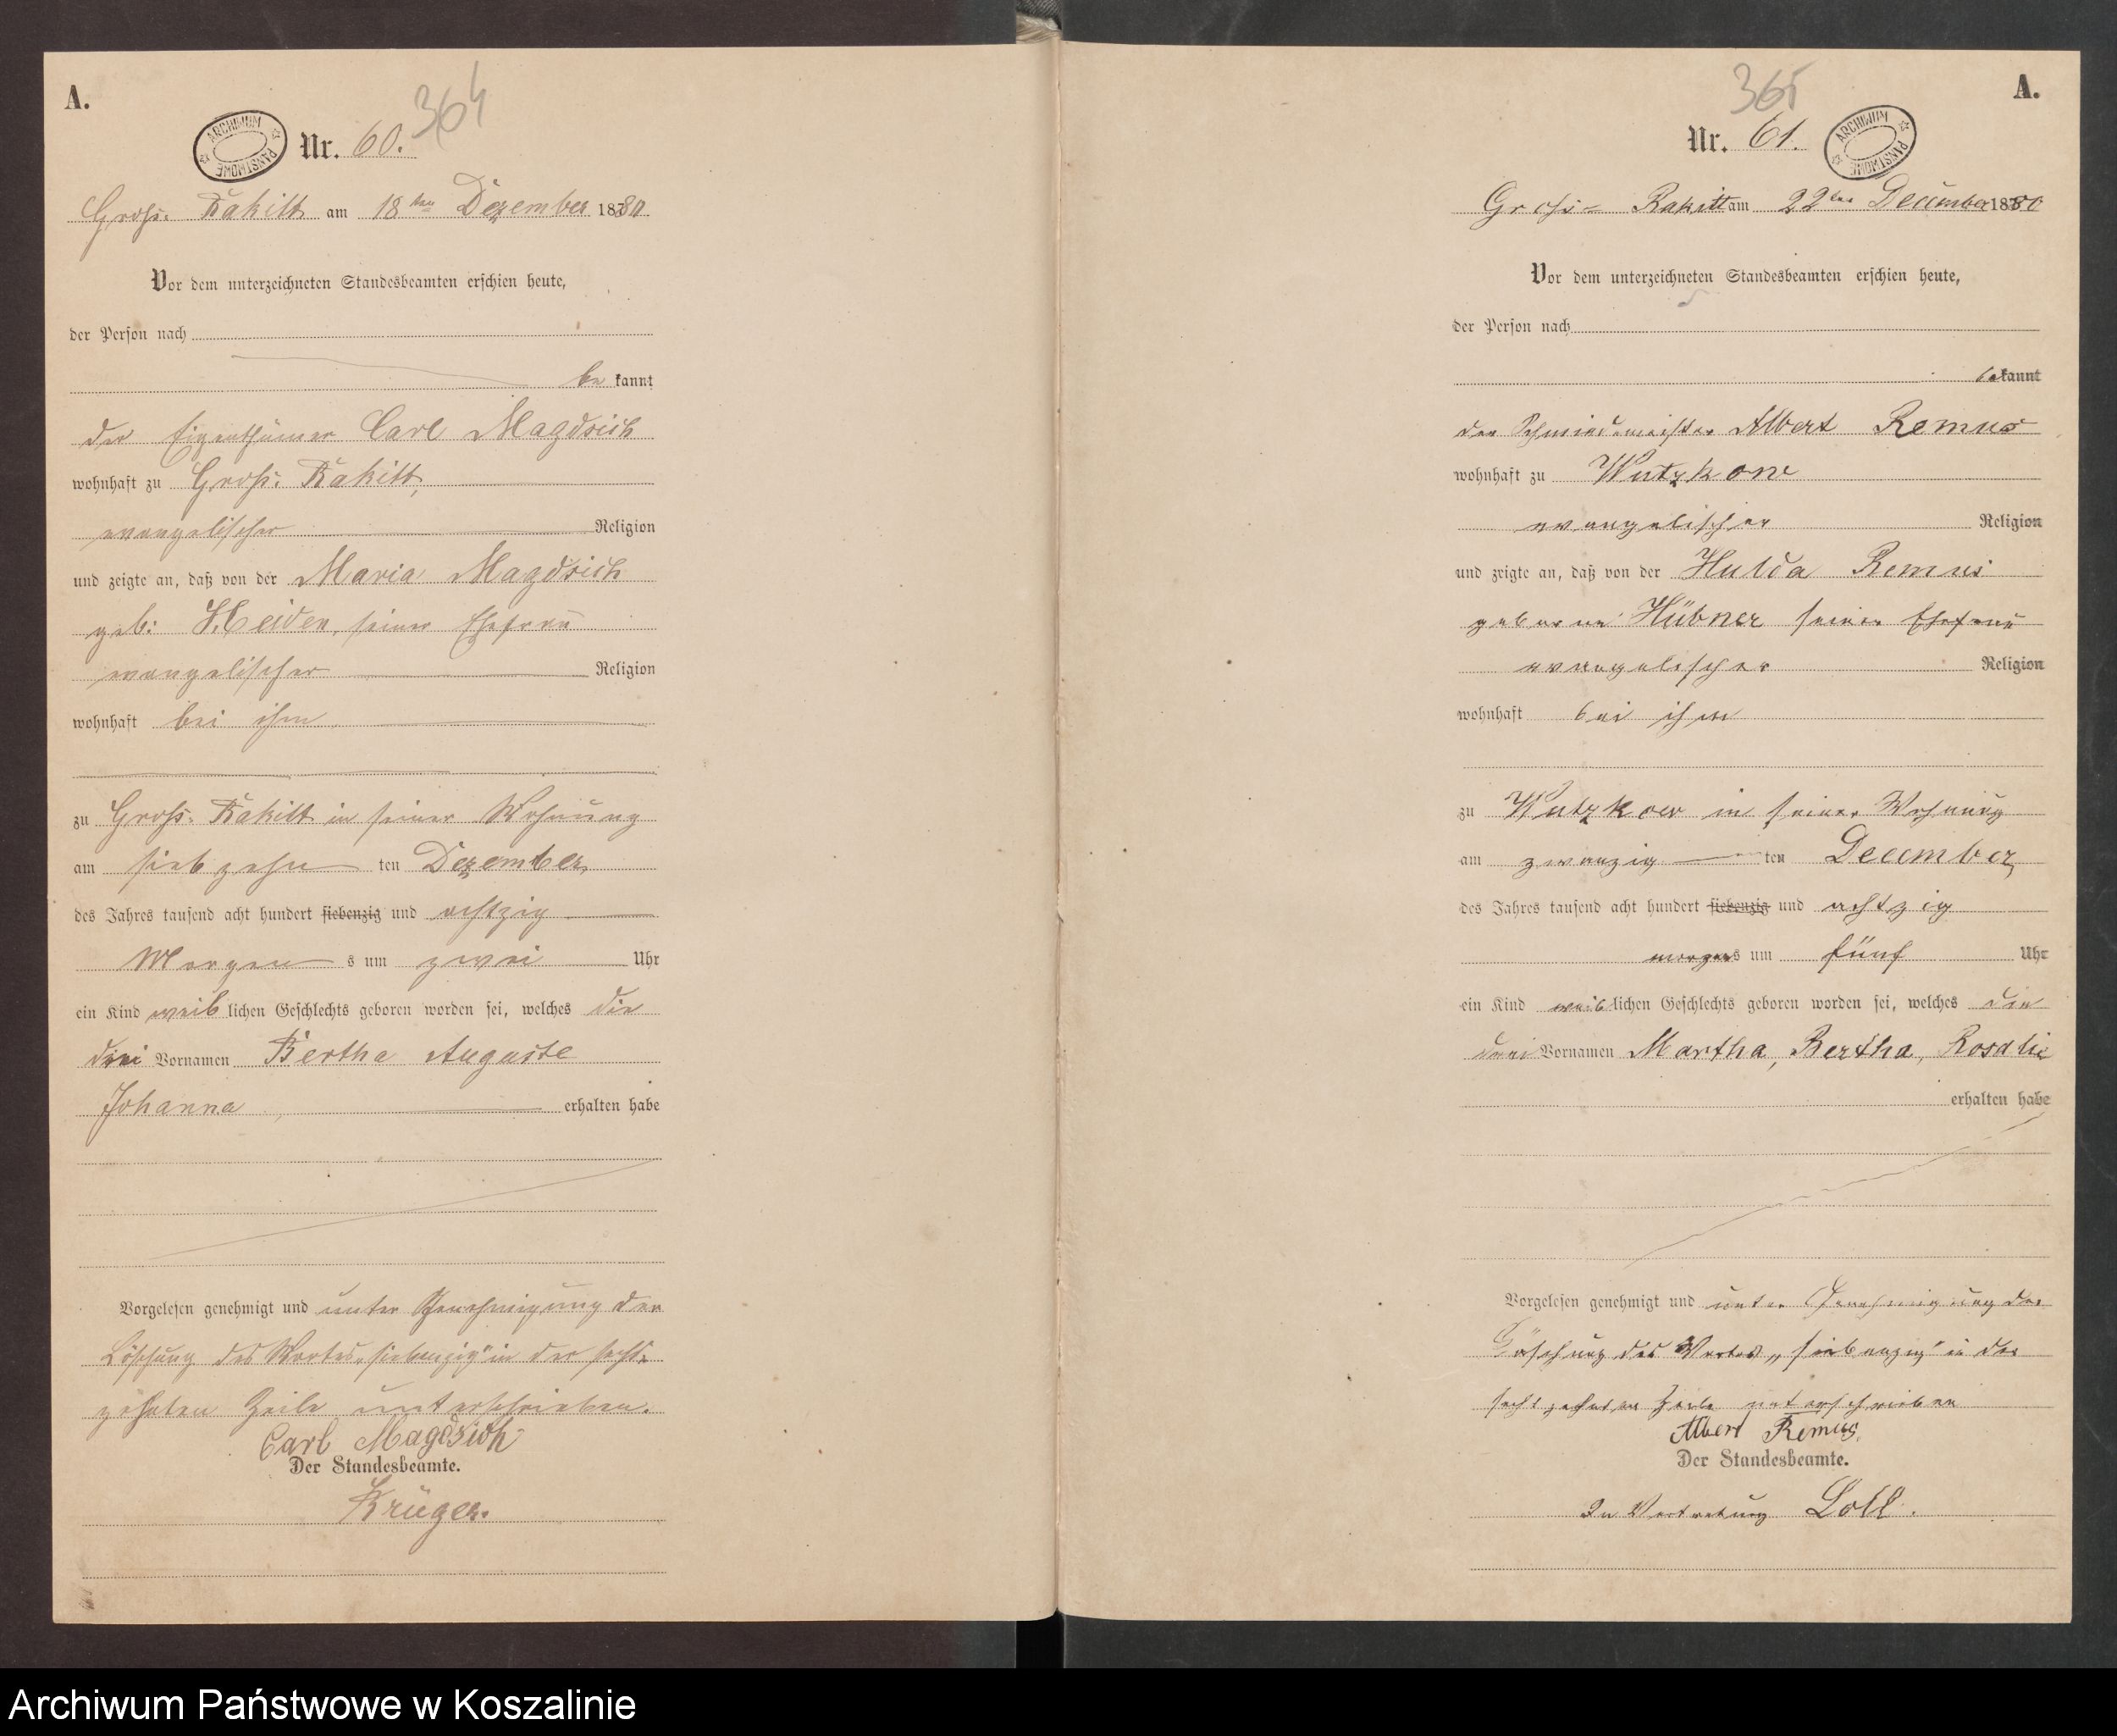 A.
364
ARCHIWUM PAŃSTWOWE
Nr. 60.
Gross: Rakitt am 18ten Dezember 1880
Vor dem unterzeichneten Standesbeamten erschien heute,
der Person nach
be kannt
der Eigenthümer Carl Magdsich
wohnhaft zu Gross: Rakitt,
evangelischer Religion
und zeigte an, daß von der Maria Magdsich
geb: Heiden, seiner Ehefrau
evangelischer Religion
wohnhaft bei ihm
zu Gross: Rakitt in seiner Wohnung
am siebzehn ten Dezember
des Jahres tausend acht hundert siebenzig und achtzig
Morgen s um zwei Uhr
ein Kind weib lichen Geschlechts geboren worden sei, welches die
drei Vornamen Bertha Auguste
Johanna erhalten habe
Vorgelesen genehmigt und unter Genehmigung der
Löschung des Wortes „siebenzig" in der sechs-
zehnten Zeile unterschrieben.
Carl Magdsich
Der Standesbeamte.
Krüger.
365
A.
Nr. 61.
ARCHIWUM PAŃSTWOWE
Gross- Rakitt am 22ten December 1880
Vor dem unterzeichneten Standesbeamten erschien heute,
der Person nach
bekannt
der Schmiedemeister Albert Remus
wohnhaft zu Wutzkow
evangelischer Religion
und zeigte an, daß von der Hulda Remus
geborene Hübner seiner Ehefrau
evangelischer Religion
wohnhaft bei ihm
zu Wutzkow in seiner Wohnung
am zwanzig ten December
des Jahres tausend acht hundert siebenzig und achtzig
morgens um fünf Uhr
ein Kind weiblichen Geschlechts geboren worden sei, welches die
drei Vornamen Martha, Bertha, Rosalie
erhalten habe
Vorgelesen genehmigt und unter Genehmigung der
Löschung des Wortes „siebenzig" in der
sechszehnten Zeile unterschrieben
Albert Remus,
Der Standesbeamte.
In Vertretung Loll.
Archiwum Państwowe w Koszalinie